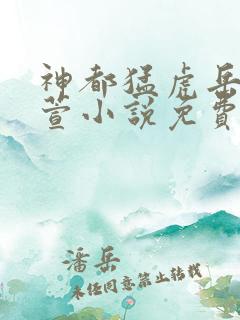 神都猛虎岳
萱小説免費
潘岳
未任同意禁止转载